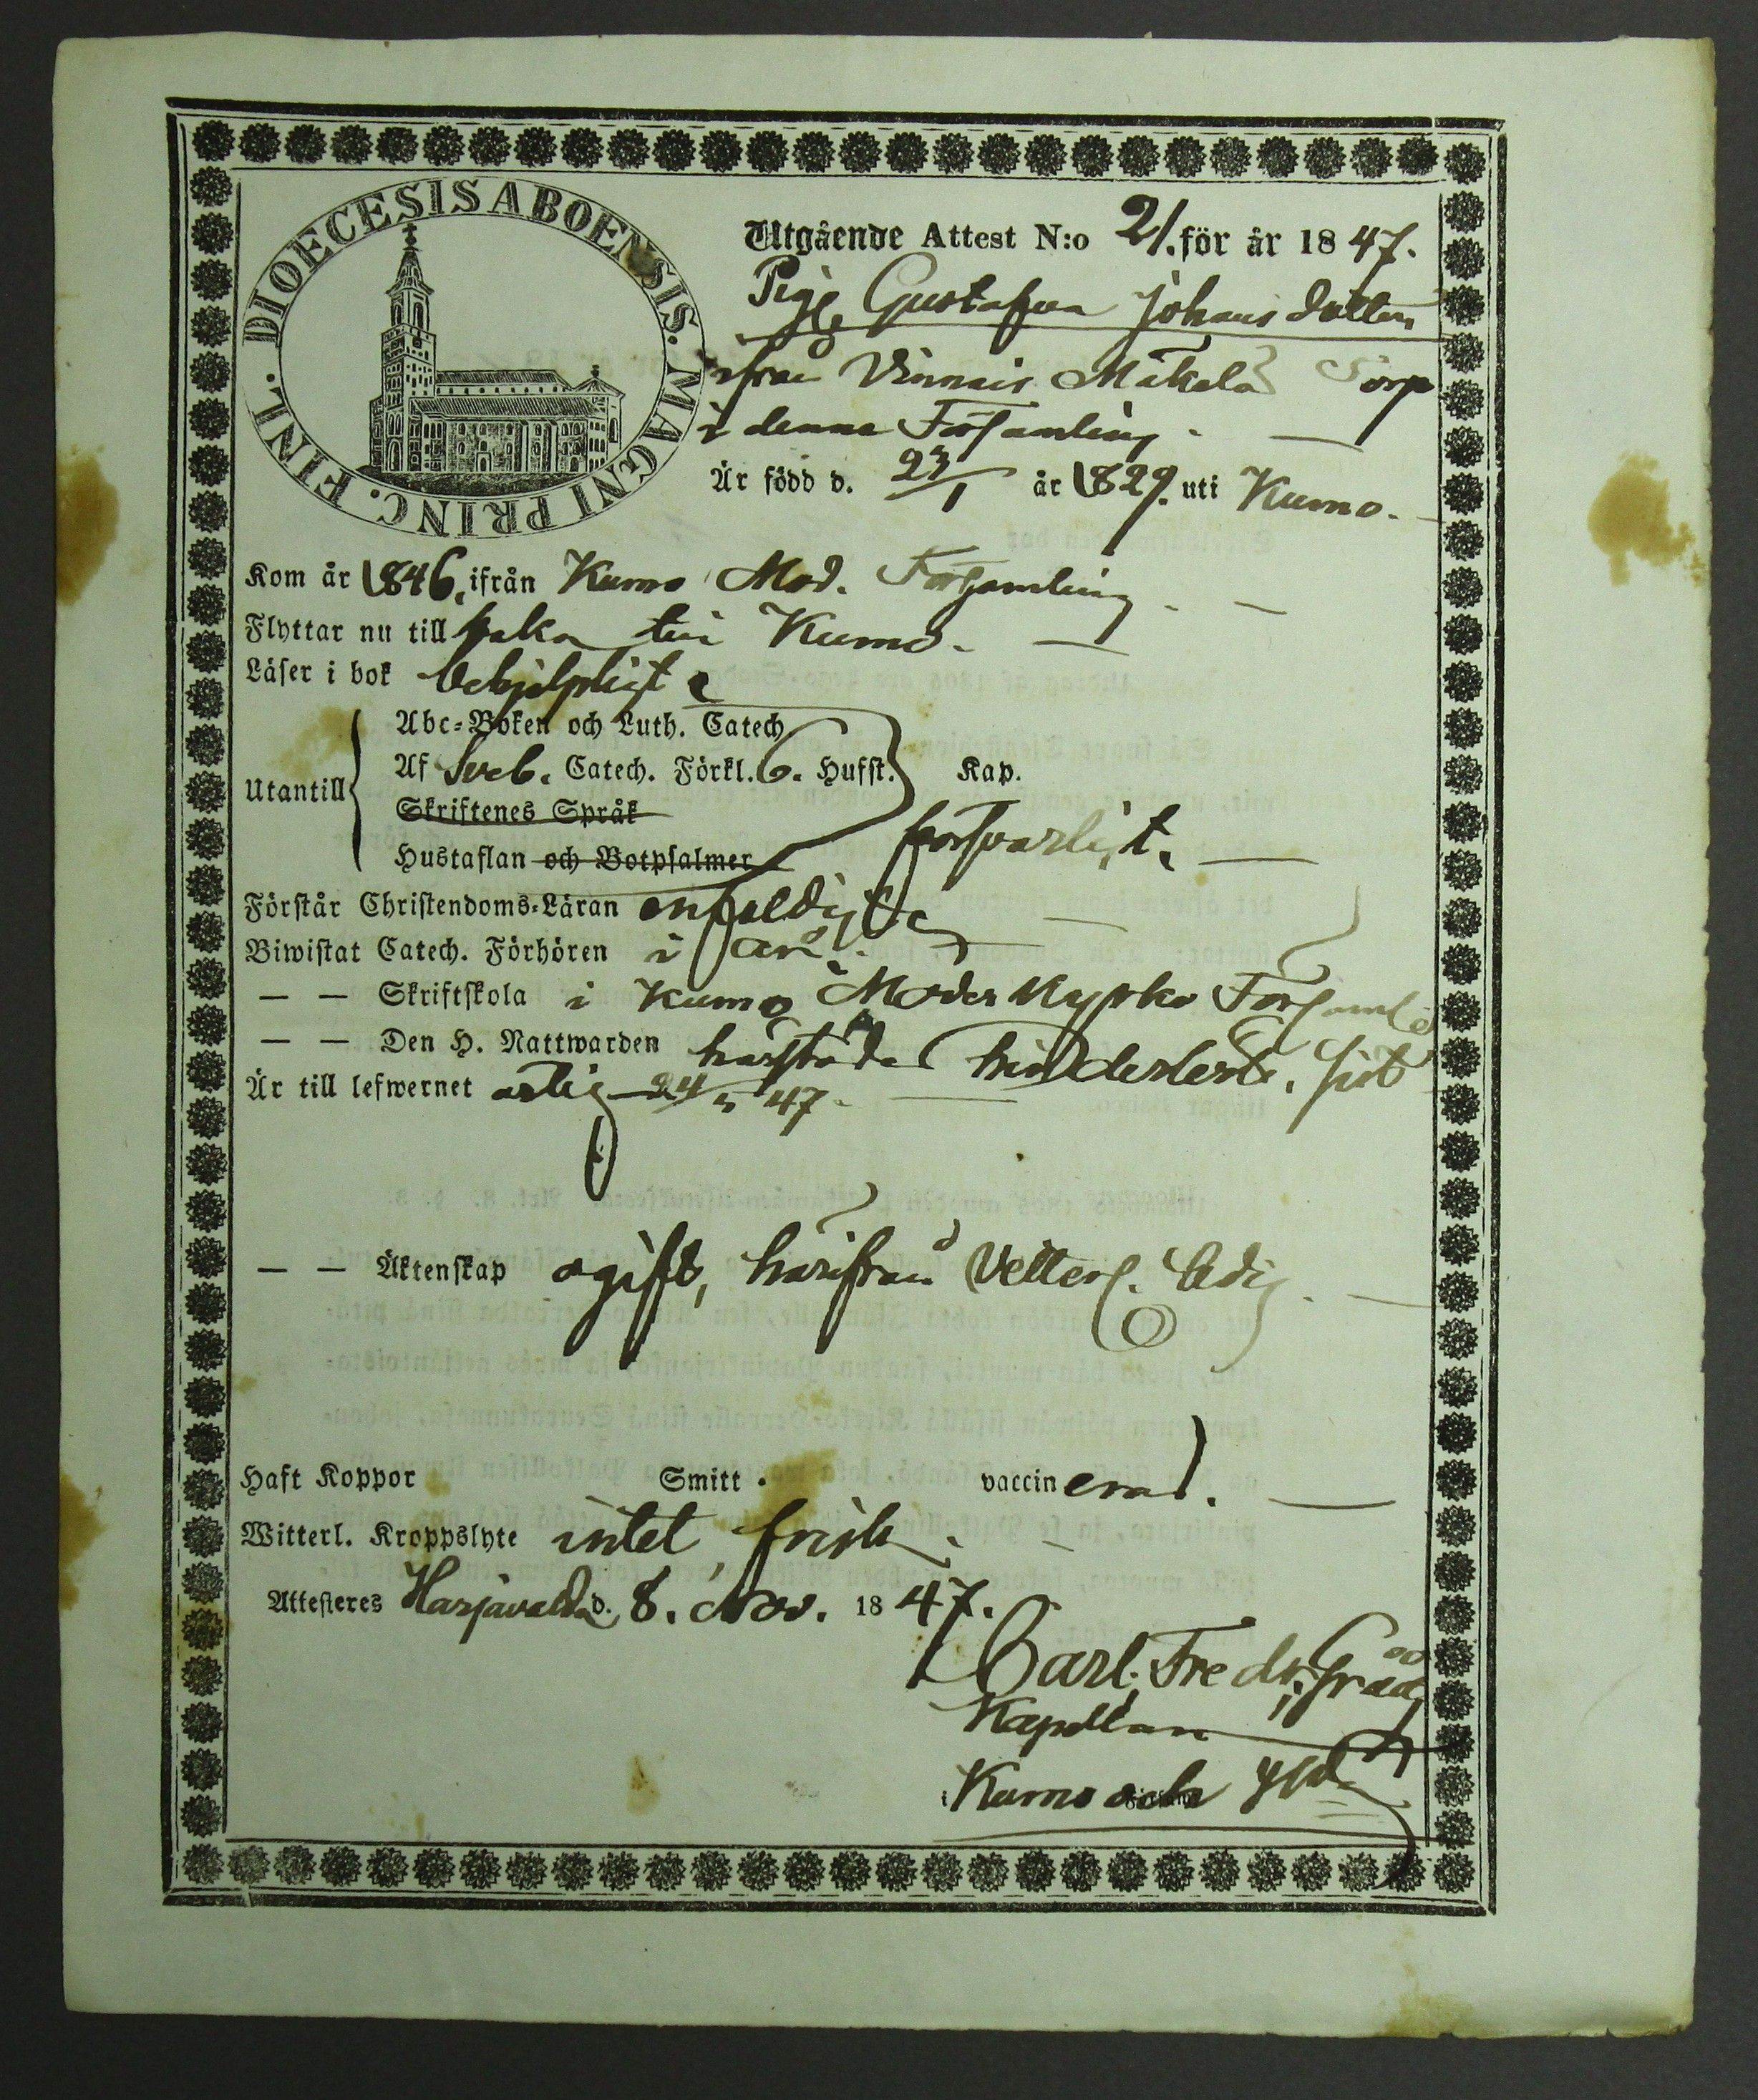 DIOECESIS ABOENSIS. MAGNI PRINC. FINL.
Utgående Attest N:o 21. för år 1847.
Pige Gustafwa Johans dotter
ifrån Vinnais Mäkelä Torp
i denna Församling.
Är född d. 23/1 år 1829. uti Kumo.
Kom år 1846. ifrån Kumo Mod. Församling.
Flyttar nu till baka till Kumo.
Läser i bok behjelpligt
Abc-Boken och Luth. Catech.
Utantill Af Sveb. Catech. Förkl. 6. Hufst. Kap.
Skriftenes Språk
Hustaflan och Botpsalmer försvarligt.
Förstår Christendoms-Läran enfaldigt
Biwistat Catech. Förhören i år.
— — Skriftskola i Kumo Moder Kyrko Församl.
— — Den H. Nattwarden härstädes hinderlös. sist
Är till lefwernet ärlig 24/5 47.
— — Äktenskap ogift, härifrån Vetterl. ledig.
Haft Koppor Smitt. vaccinerad.
Witterl. Kroppslyte intet, frisk.
Attesteras Harjavalda d. 8. Nov. 1847.
Carl Fredr. Grää
Kapellan
i Kumo och